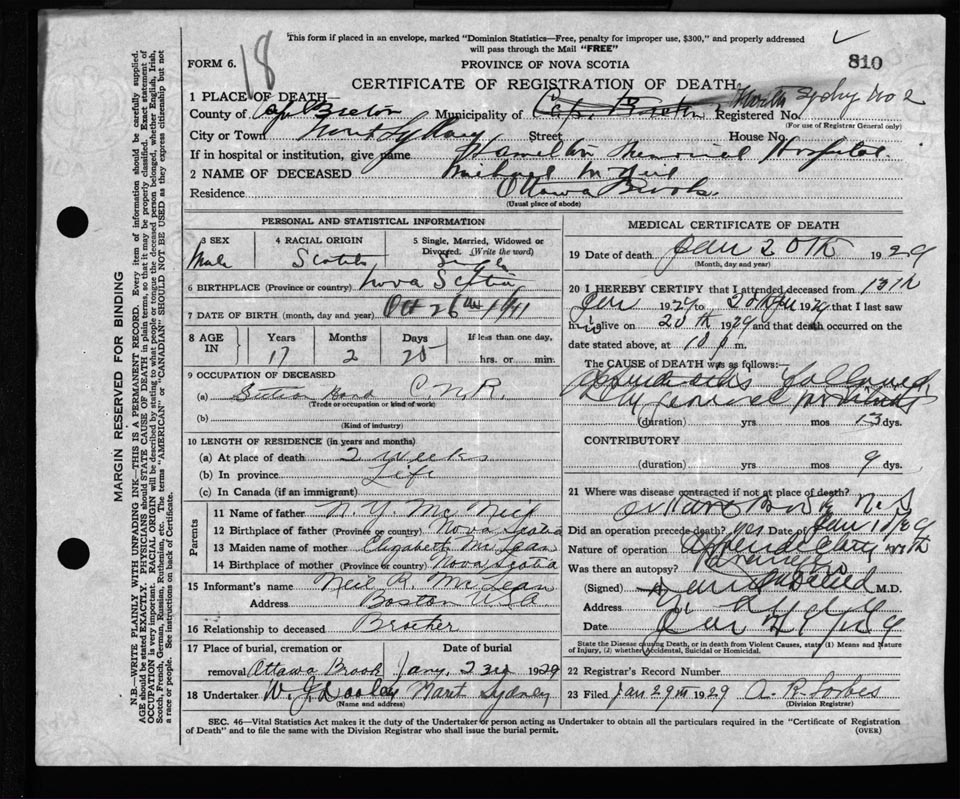 This form if placed in an envelope, marked "Dominion Statistics—Free, penalty for improper use, $300," and properly addressed
will pass through the Mail "FREE"
FORM 6.
18
PROVINCE OF NOVA SCOTIA
810
CERTIFICATE OF REGISTRATION OF DEATH
1 PLACE OF DEATH—
County of Cape Breton Municipality of Cape Breton Registered No. North Sydney No 2
(For use of Registrar General only)
City or Town North Sydney Street House No.
If in hospital or institution, give name Hamilton Memorial Hospital.
2 NAME OF DECEASED Michael McNeil
Residence Ottawa Brook.
(Usual place of abode)
PERSONAL AND STATISTICAL INFORMATION
3 SEX
Male
4 RACIAL ORIGIN
Scotch
5 Single, Married, Widowed or Divorced. (Write the word)
Single
6 BIRTHPLACE (Province or country) Nova Scotia
7 DATE OF BIRTH (month, day and year) Oct 26th
8 AGE IN
Years Months Days If less than one day,
17 2 25 hrs. or min.
9 OCCUPATION OF DECEASED
(a) Section Hand C.N.R.
(Trade or occupation or kind of work)
(b)
(Kind of industry)
10 LENGTH OF RESIDENCE (in years and months)
(a) At place of death 2 weeks
(b) In province Life
(c) In Canada (if an immigrant)
Parents
11 Name of father N. Y. McNeil
12 Birthplace of father (Province or country) Nova Scotia
13 Maiden name of mother Elizabeth McLean
14 Birthplace of mother (Province or country) Nova Scotia
15 Informant's name Neil R. McLean
Address Boston U.S.A
16 Relationship to deceased Brother
17 Place of burial, cremation or removal Date of burial
Ottawa Brook Jany. 23rd 1929
18 Undertaker W. J. Dooley North Sydney
(Name and address)
MEDICAL CERTIFICATE OF DEATH
19 Date of death Jan 20th 1929
(Month, day and year)
20 I HEREBY CERTIFY that I attended deceased from 13th
Jan 1929 to 20th Jan 1929 that I last saw
him alive on 20th 1929 and that death occurred on
date stated above, at 10 P m.
The CAUSE OF DEATH was as follows:—
Appendicitis followed
by general peritonitis
(duration) yrs mos 13 dys.
CONTRIBUTORY
(duration) yrs mos 9 dys.
21 Where was disease contracted if not at place of death?
Ottawa Brook N.S
Did an operation precede death? yes Date of Jan
Nature of operation Appendectomy with
Was there an autopsy?
(Signed) M.D.
Address
Date Jan
State the Disease causing Death, or in death from Violent Causes, state (1) Means and Nature of Injury, (2) whether Accidental, Suicidal or Homicidal.
22 Registrar's Record Number
23 Filed Jan 29th 1929 A. R. Forbes
(Division Registrar)
SEC. 46—Vital Statistics Act makes it the duty of the Undertaker or person acting as Undertaker to obtain all the particulars required in the "Certificate of Registration
of Death" and to file the same with the Division Registrar who shall issue the burial permit.
(OVER)
MARGIN RESERVED FOR BINDING
N.B.—WRITE PLAINLY WITH UNFADING INK—THIS IS A PERMANENT RECORD. Every item of information should be carefully supplied.
AGE should be stated EXACTLY. PHYSICIANS should STATE CAUSE OF DEATH in plain terms, so that it may be properly classified. Exact statement of
OCCUPATION is very important. RACIAL ORIGIN will be described by stating to what people or tongue the deceased person belonged, whether English, Irish,
Scotch, French, German, Russian, Ruthenian, etc. The terms "AMERICAN" or "CANADIAN" SHOULD NOT BE USED as they express citizenship but not
a race or people. See instructions on back of Certificate.